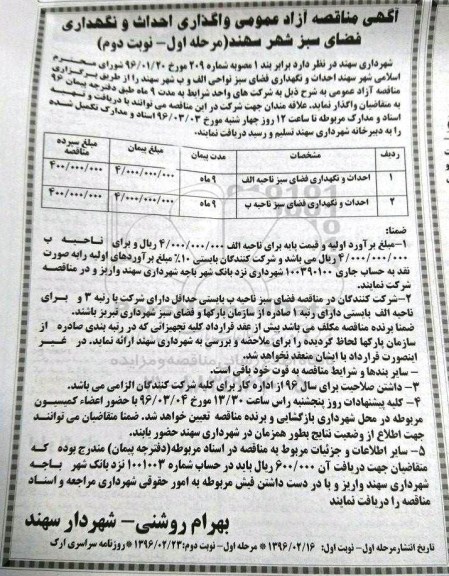 آگهی مناقصه آزاد عمومی واگذاری احداث و نگهداری
فضای سبز شهر سهند (مرحله اول- نوبت دوم)
شهرداری سهند در نظر دارد برابر بند ۱ مصوبه شماره ۲۰۹ مورخ ۹۶/۰۱/۲۰ شورای محترم
اسلامی شهر سهند احداث و نگهداری فضای سبز نواحی الف و ب شهر سهند را از طریق برگزاری
مناقصه آزاد عمومی به شرح ذیل به شرکت های واجد شرایط به مدت ۹ ماه طبق دفترچه پیمان ۹۶
به متقاضیان واگذار نماید. علاقه مندان جهت شرکت در این مناقصه می توانند با دریافت و تهیه
اسناد و مدارک مربوطه تا ساعت ۱۲ روز چهار شنبه مورخ ۹۶/۰۳/۰۳ اسناد و مدارک تکمیل شده
را به دبیرخانه شهرداری سهند تسلیم و رسید دریافت نمایند.
ردیف مشخصات مدت پیمان مبلغ پیمان مبلغ سپرده مناقصه
۱ احداث و نگهداری فضای سبز ناحیه الف ۹ ماه ۴/۰۰۰/۰۰۰/۰۰۰ ۴۰۰/۰۰۰/۰۰۰
۲ احداث و نگهداری فضای سبز ناحیه ب ۹ ماه ۴/۰۰۰/۰۰۰/۰۰۰ ۴۰۰/۰۰۰/۰۰۰
ضمنا:
۱-مبلغ برآورد اولیه و قیمت پایه برای ناحیه الف ۴/۰۰۰/۰۰۰/۰۰۰ ریال و برای ناحیه ب
۴/۰۰۰/۰۰۰/۰۰۰ ریال می باشد و شرکت کنندگان بایستی ۱۰٪ مبلغ برآوردهای اولیه را به صورت
نقد به حساب جاری ۱۰۰۳۹۰۱۰۰ شهرداری نزد بانک شهر باجه شهرداری سهند واریز و در مناقصه
شرکت نمایند.
۲-شرکت کنندگان در مناقصه فضای سبز ناحیه ب بایستی حداقل دارای شرکت با رتبه ۳ و برای
ناحیه الف بایستی دارای رتبه ۱ صادره از سازمان پارکها و فضای سبز شهرداری تبریز باشند.
ضمنا برنده مناقصه مکلف می باشد پیش از عقد قرارداد کلیه تجهیزاتی که در رتبه بندی صادره از
سازمان پارکها لحاظ گردیده را برای ملاحظه و بررسی به شهرداری سهند ارائه نماید. در غیر
اینصورت قرارداد با ایشان منعقد نخواهد شد.
- سایر بندها و شرایط مناقصه به قوت خود باقی است.
۳- داشتن صلاحیت برای سال ۹۶ از اداره کار برای کلیه شرکت کنندگان الزامی می باشد.
۴- کلیه پیشنهادات روز پنجشنبه راس ساعت ۱۳/۳۰ مورخ ۹۶/۰۳/۰۴ با حضور اعضاء کمیسیون
مربوطه در محل شهرداری بازگشایی و برنده مناقصه تعیین خواهد شد. ضمنا متقاضیان می توانند
جهت اطلاع از وضعیت نتایج بطور همزمان در شهرداری سهند حضور یابند.
۵- سایر اطلاعات و جزئیات مربوط به مناقصه در اسناد مربوطه(دفترچه پیمان) مندرج بوده که
متقاضیان جهت دریافت آن ۶۰۰/۰۰۰ ریال باید در حساب شماره ۱۰۰۱۰۰۳ نزد بانک شهر باجه
شهرداری سهند واریز و با در دست داشتن فیش مربوطه به امور حقوقی شهرداری مراجعه و اسناد
مناقصه را دریافت نمایند
بهرام روشنی- شهردار سهند
تاریخ انتشار مرحله اول- نوبت اول: ۱۳۹۶/۰۲/۱۶ * مرحله اول- نوبت دوم: ۱۳۹۶/۰۲/۲۳ * روزنامه سراسری ارک